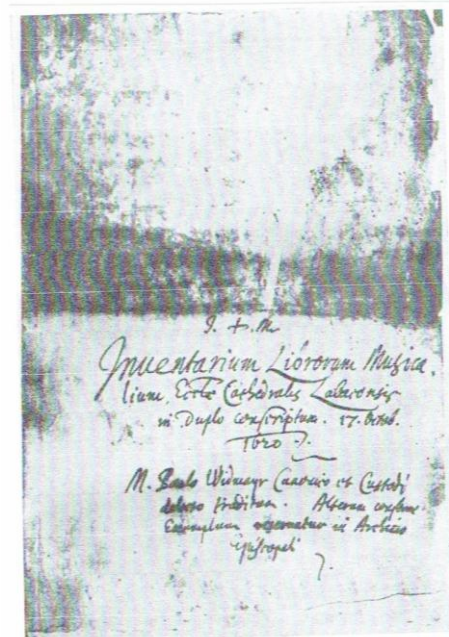 J. + M.
Inventarium Librorum Musica-
lium Eccłæ Cathedralis Labacensis
in Duplo conscriptum. 17. Octob.
1620
M. Paulo Widmayr Canonico et Custodi
traditum. Alterum
Exemplum in Archivio
Episcopali